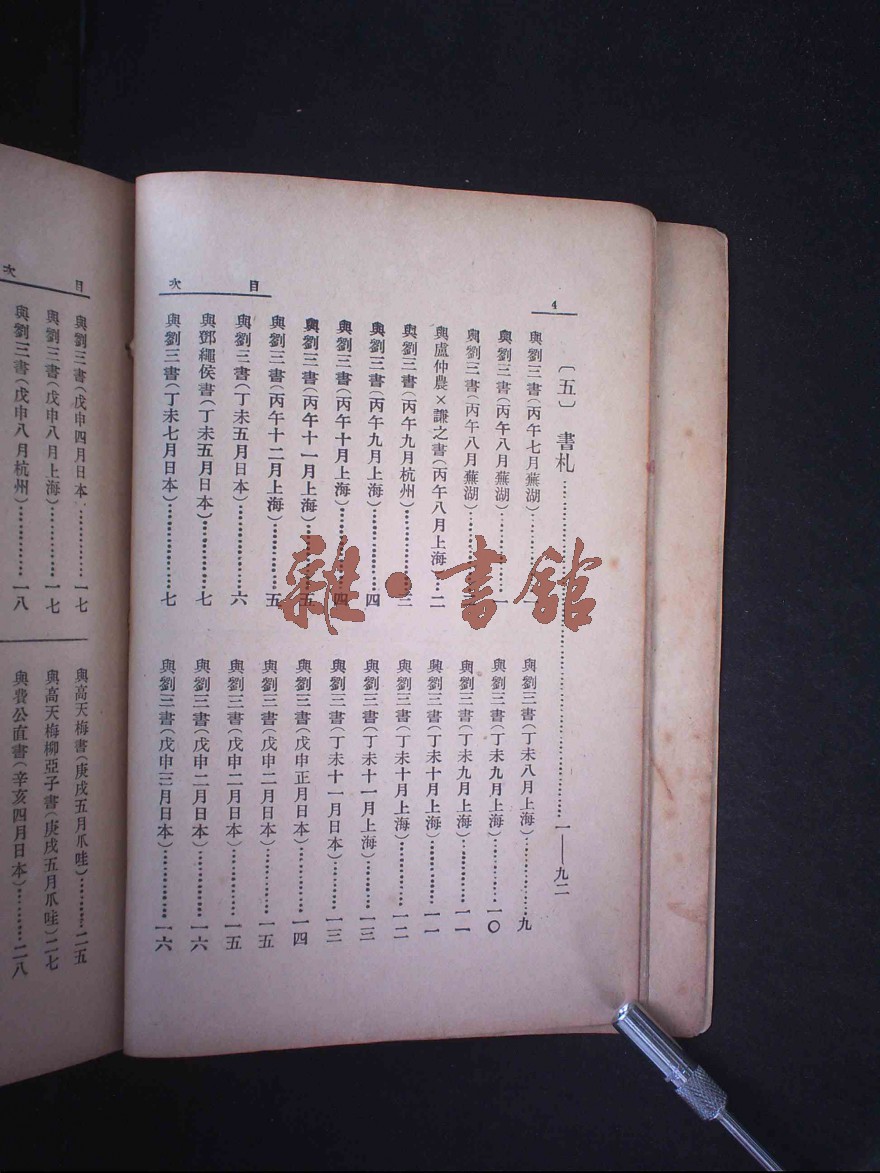 4
〔五〕 書札……………………一——九二
與劉三書(丙午七月蕪湖)…………一
與劉三書(丙午八月蕪湖)…………一
與劉三書(丙午八月蕪湖)…………二
與盧仲農×謙之書(丙午八月上海)…二
與劉三書(丙午九月杭州)…………三
與劉三書(丙午九月上海)…………四
與劉三書(丙午十月上海)…………四
與劉三書(丙午十一月上海)………五
與劉三書(丙午十二月上海)………五
與劉三書(丁未五月日本)…………六
與鄧繩侯書(丁未五月日本)………七
與劉三書(丁未七月日本)…………七
與劉三書(丁未八月上海)…………九
與劉三書(丁未九月上海)…………一〇
與劉三書(丁未九月上海)…………一一
與劉三書(丁未十月上海)…………一一
與劉三書(丁未十月上海)…………一二
與劉三書(丁未十一月上海)………一三
與劉三書(丁未十一月日本)………一三
與劉三書(戊申正月日本)…………一四
與劉三書(戊申二月日本)…………一五
與劉三書(戊申二月日本)…………一五
與劉三書(戊申二月日本)…………一六
與劉三書(戊申三月日本)…………一六
目次
目次
與劉三書(戊申四月日本…………一七
與劉三書(戊申八月上海)…………一七
與劉三書(戊申八月杭州)…………一八
與高天梅書(庚戌五月爪哇)………二五
與高天梅柳亞子書(庚戌五月爪哇)二七
與費公直書(辛亥四月日本)………二八
雜·書館